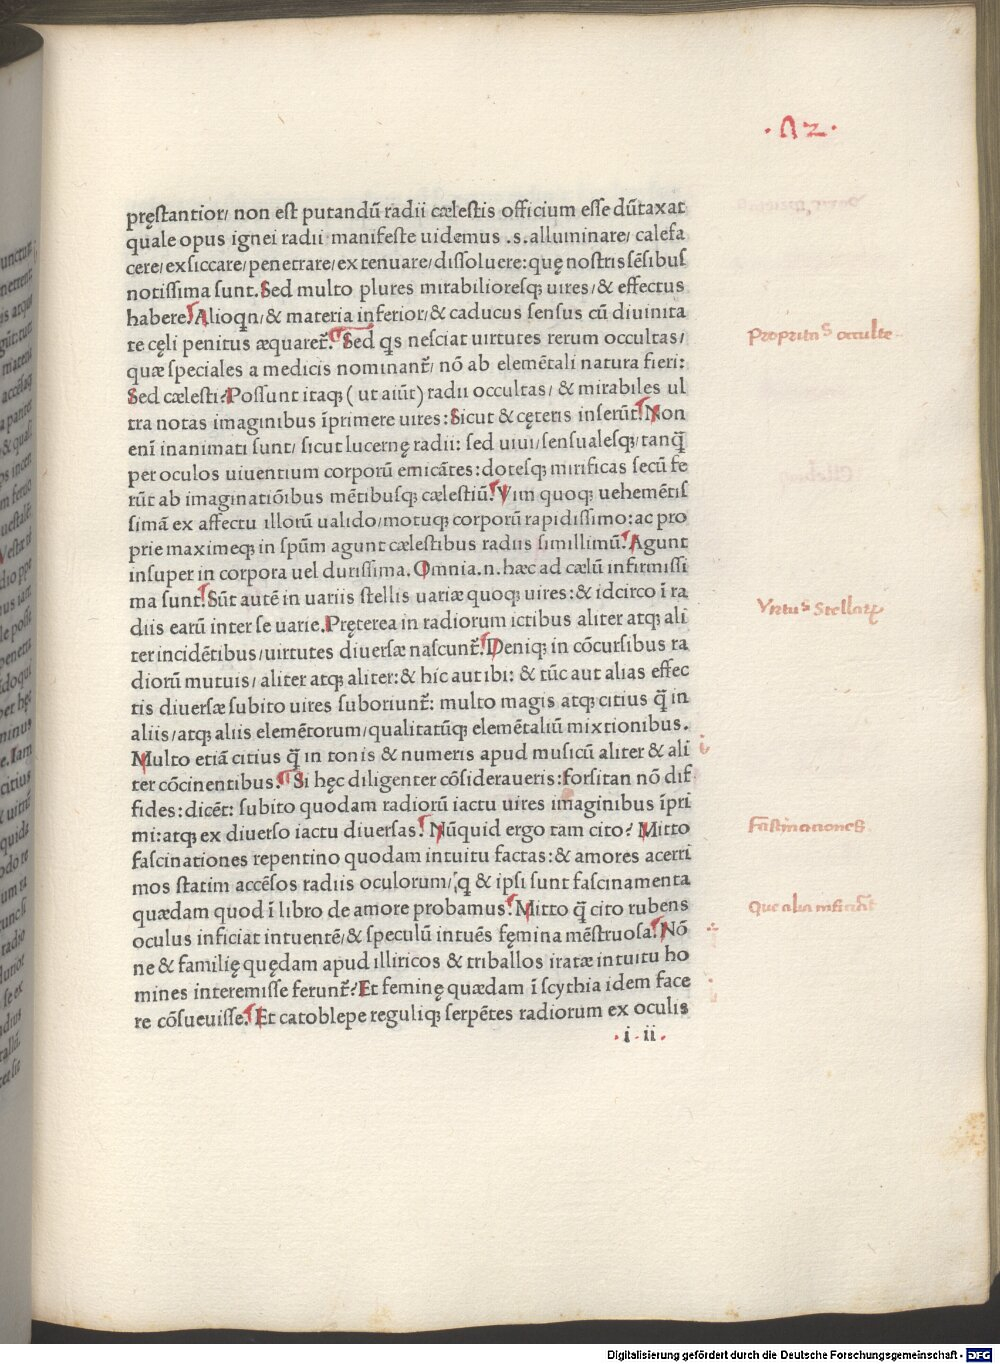 ·Λ2·
pręstantior/ non est putandū radii cælestis officium esse dūtaxat
quale opus ignei radii manifeste uidemus .s.alluminare/ calefa
cere/exsiccare/penetrare/extenuare/dissoluere:quę nostris sēsibus
notissima sunt.Sed multo plures mirabilioresqꝫ uires/& effectus
habere.Alioqn/& materia inferior/& caducus sensus cū diuinita
te cęli penitus æquaret᷑. Sed qs nesciat uirtutes rerum occultas/
quæ speciales a medicis nominant᷑/ nō ab elemētali natura fieri:
Sed cælesti?Possunt itaqꝫ( ut aiūt) radii occultas/ & mirabiles ul
tra notas imaginibus īprimere uires:Sicut & cęteris inserūt.Non
enī inanimati sunt/ sicut lucernę radii: sed uiui/sensualesqꝫ/tanq̄
per oculos uiuentium corporū emicātes:dotesqꝫ mirificas secū fe
rūt ab imaginatiōibus mētibusqꝫ cælestiū.Vim quoqꝫ uehemētis
simā ex affectu illorū ualido/motuqꝫ corporū rapidissimo:ac pro
prie maximeqꝫ in spūm agunt cælestibus radiis simillimū.Agunt
insuper in corpora uel durissima.Omnia.n.hæc ad cælū infirmissi
ma sunt.Sūt autē in uariis stellis uariæ quoqꝫ uires:& idcirco ī ra
diis earū inter se uarie.Pręterea in radiorum ictibus aliter atqꝫ ali
ter incidētibus/uirtutes diuersæ nascunt᷑.Deniqꝫ in cōcursibus ra
diorū mutuis/ aliter atqꝫ aliter:& hic aut ibi: & tūc aut alias effec
tis diuersæ subito uires suboriunt᷑: multo magis atqꝫ citius q̄ in
aliis/atqꝫ aliis elemētorum/qualitatūqꝫ elemētaliū mixtionibus.
Multo etiā citius q̄ in tonis & numeris apud musicū aliter & ali
ter cōcinentibus. Si hęc diligenter cōsideraueris:forsitan nō dif
fides:dicēt: subito quodam radiorū iactu uires imaginibus īpri
mi:atqꝫ ex diuerso iactu diuersas. Nūquid ergo tam cito? Mitto
fascinationes repentino quodam intuitu factas:& amores acerri
mos statim accēsos radiis oculorum/ q & ipsi sunt fascinamenta
quædam quod ī libro de amore probamus.Mitto q̄ cito rubens
oculus inficiat intuentē/& speculū intuēs fęmina mēstruosa.Nō
ne & familię quędam apud illiricos & triballos iratæ intuitu ho
mines interemisse ferunt᷑?Et feminę quædam ī scythia idem face
re cōsueuisse. Et catoblepe reguliqꝫ serpētes radiorum ex oculis
·i·ii·
occulte
Virtus Stellarꝝ
Fascinationes
Que alia inficiāt
Digitalisierung gefördert durch die Deutsche Forschungsgemeinschaft - DFG